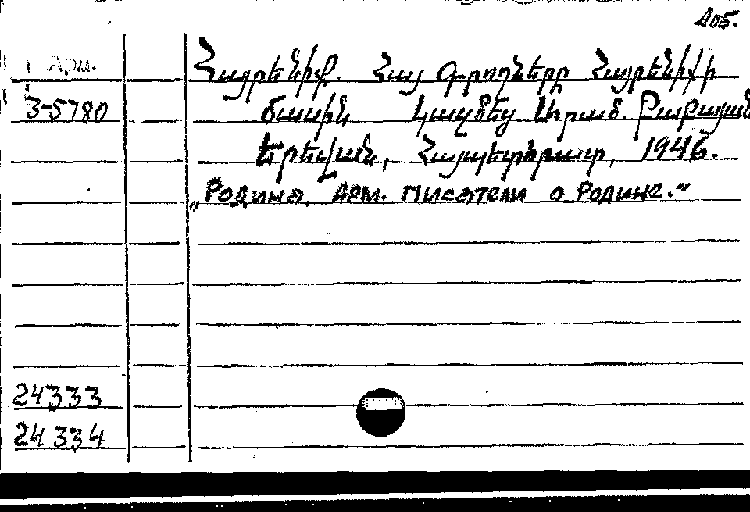 405.
Арм.
Հայրենիք. Հայ գրողները Հայրենիքի
3-5780
մասին Կազմեց Արամ. Բաբայան
Երեվան, Հայպետհրատ, 1946.
„Родина. Арм. писатели о Родине."
24333
24334